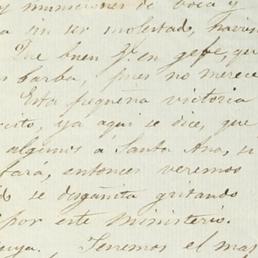 y municiones de boca y
sin ser molestad,
Que buen Y. en gefe, que
barba, pues no merece
Esta pequeña victoria
ya aqui se dice, que
algunos á Santa Ana, se
fará, entonces veremos
se desgañita gritando
por este ministerio.
Tenemos el mas